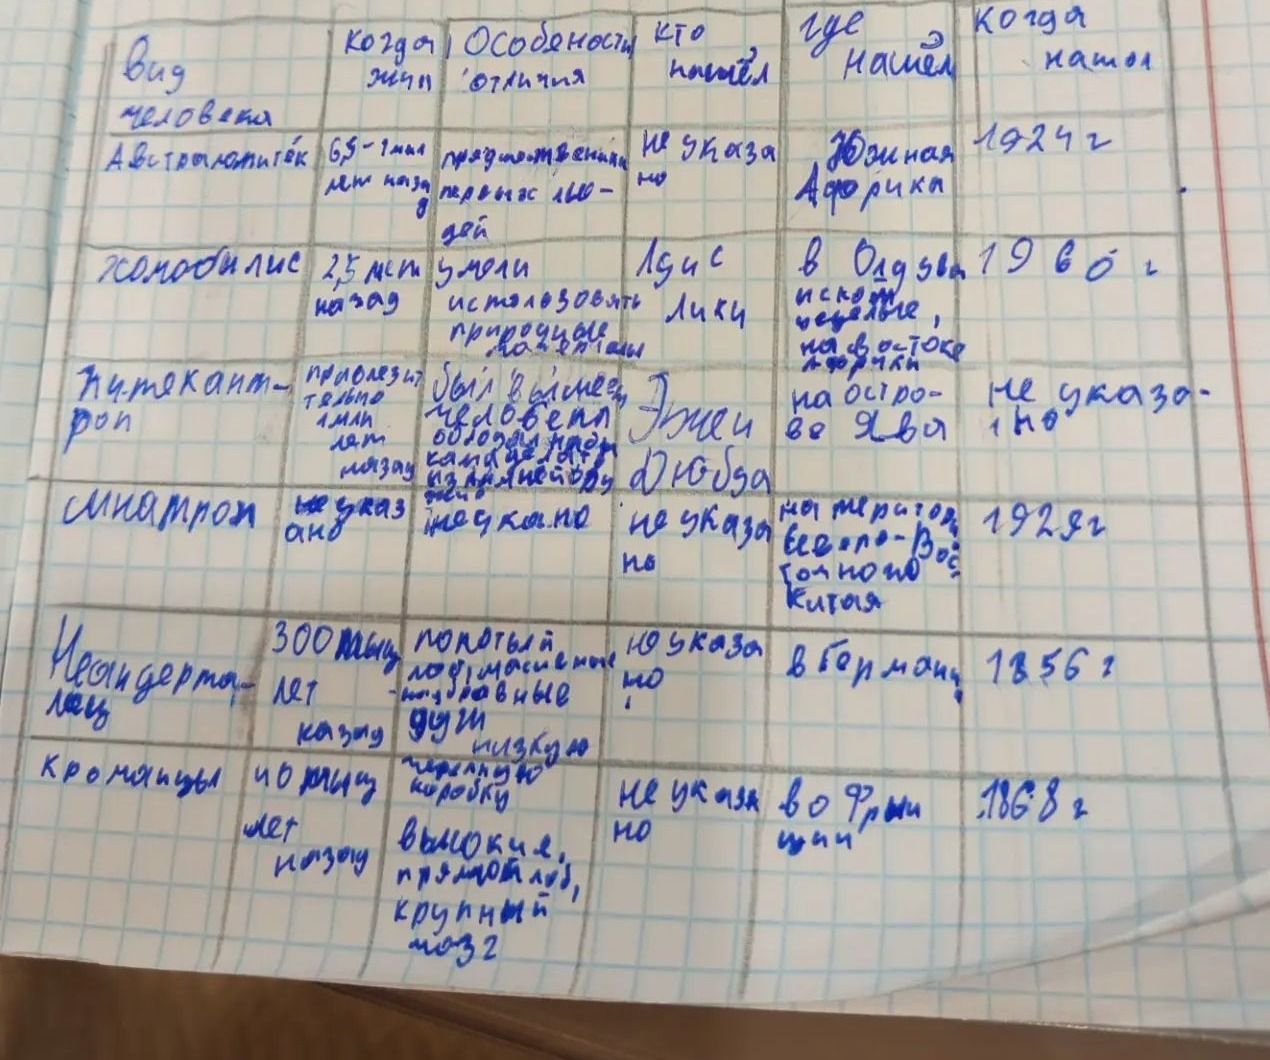 Вид
человека
когда
жил
Особености
отличия
кто
нашёл
где
нашёл
когда
нашол
Австралопитек
6,5-1 мил
лет наза
д
предшественики
первых лю-
дей
не указа
но
Южная
Африка
1924 г
хомобилис
2,5 мет
назад
умели
использовать
природные
материалы
Луис
Лики
в Олдува
йском
ущелье,
на востоке
Африки
1960 г
питекант-
роп
приблезит
тельно
1 мли
лет
назад
был
человека
Эжен
Дюбуа
на остро-
ве Ява
не указа-
но
синатроп
не указ
ано
неукано
не указа
но
на територ
Северо-Вос
точного
Китая
192
Неандерта-
лец
300 тыщ
лет
казад
покотый
лоб,
дуги
низкую
черепную
коробку
не указа
но
в Германи
1856 г
кроманцы
40 тыщ
лет
назад
высокие,
прямой лоб,
крупный
мозг
не указа
но
во Фран
ции
1868 г